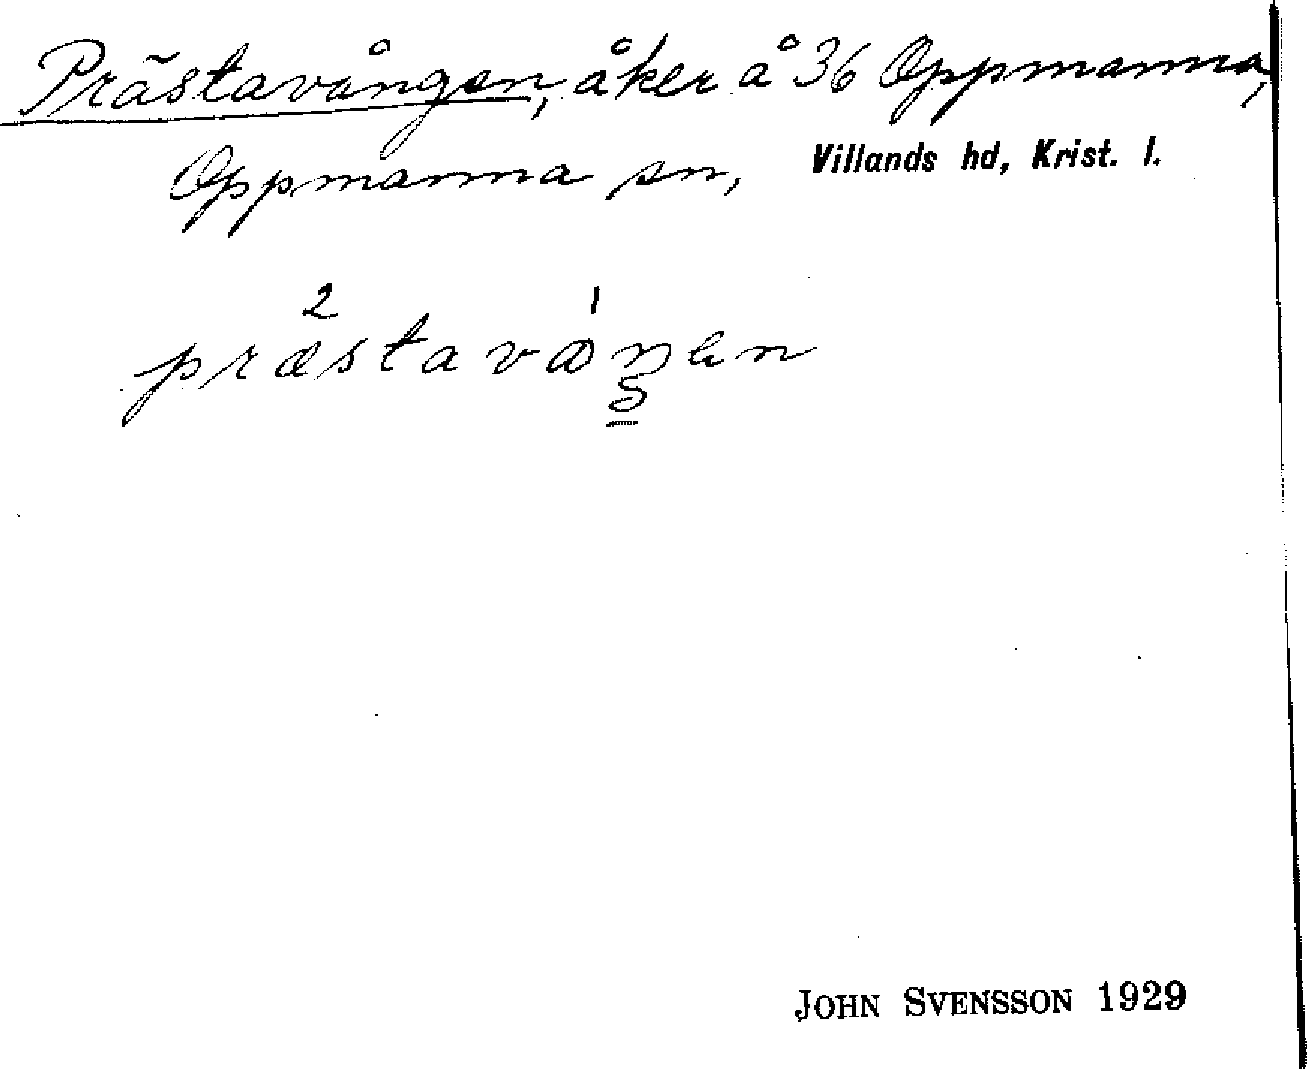 Prästavången, åker å 36 Oppmanna,
Oppmanna sn, Villands hd, Krist. l.
2 1
præstavåŋen
JOHN SVENSSON 1929